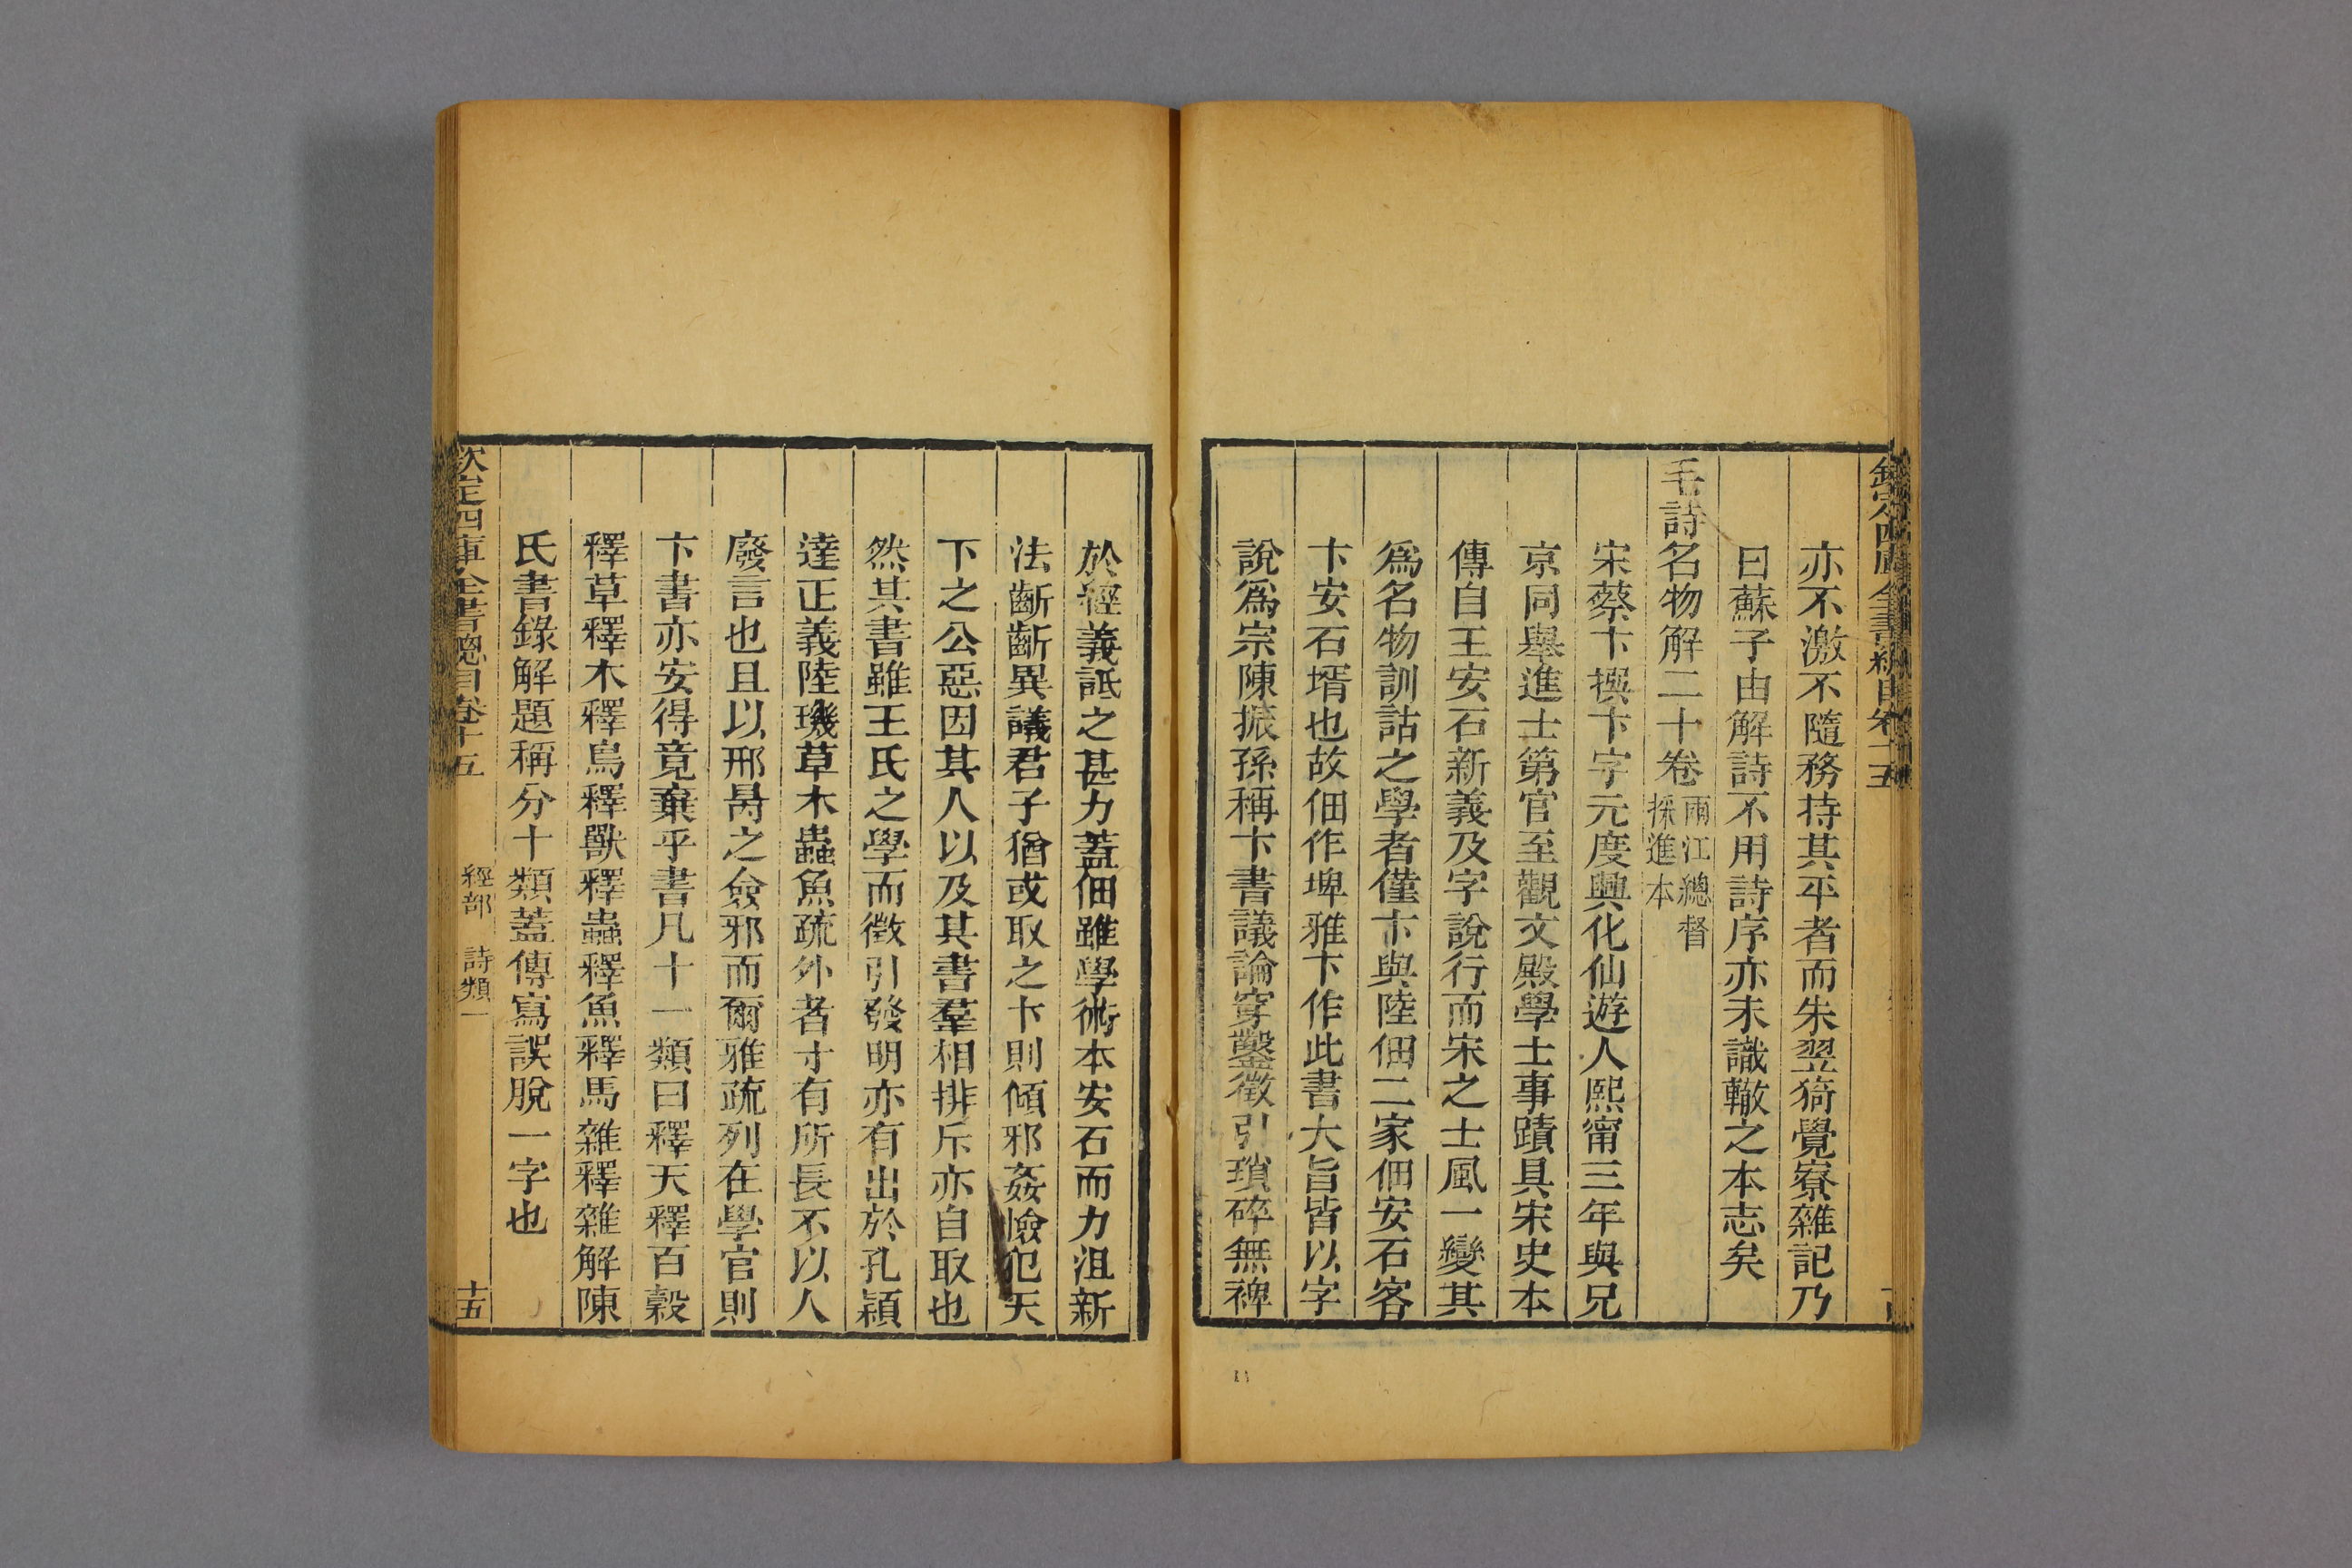 欽定四庫全書總目卷十五
亦不激不隨務持其平者而朱翌猗覺寮雜記乃
曰蘇子由解詩不用詩序亦未識轍之本志矣
毛詩名物解二十卷
兩江總督
採進本
宋蔡卞撰卞字元度興化仙遊人熙甯三年與兄
京同舉進士第官至觀文殿學士事蹟具宋史本
傳自王安石新義及字說行而宋之士風一變其
爲名物訓詁之學者僅卞與陸佃二家佃安石客
卞安石壻也故佃作埤雅卞作此書大旨皆以字
說爲宗陳振孫稱卞書議論穿鑿徵引瑣碎無裨
於經義詆之甚力蓋佃雖學術本安石而力沮新
法齗齗異議君子猶或取之卞則傾邪姦憸犯天
下之公惡因其人以及其書羣相排斥亦自取也
然其書雖王氏之學而徵引發明亦有出於孔穎
達正義陸璣草木蟲魚疏外者寸有所長不以人
廢言也且以邢昺之僉邪而爾雅疏列在學官則
卞書亦安得竟棄乎書凡十一類曰釋天釋百穀
釋草釋木釋鳥釋獸釋蟲釋魚釋馬雜釋雜解陳
氏書錄解題稱分十類蓋傳寫誤脫一字也
欽定四庫全書總目卷十五
經部 詩類一
十五